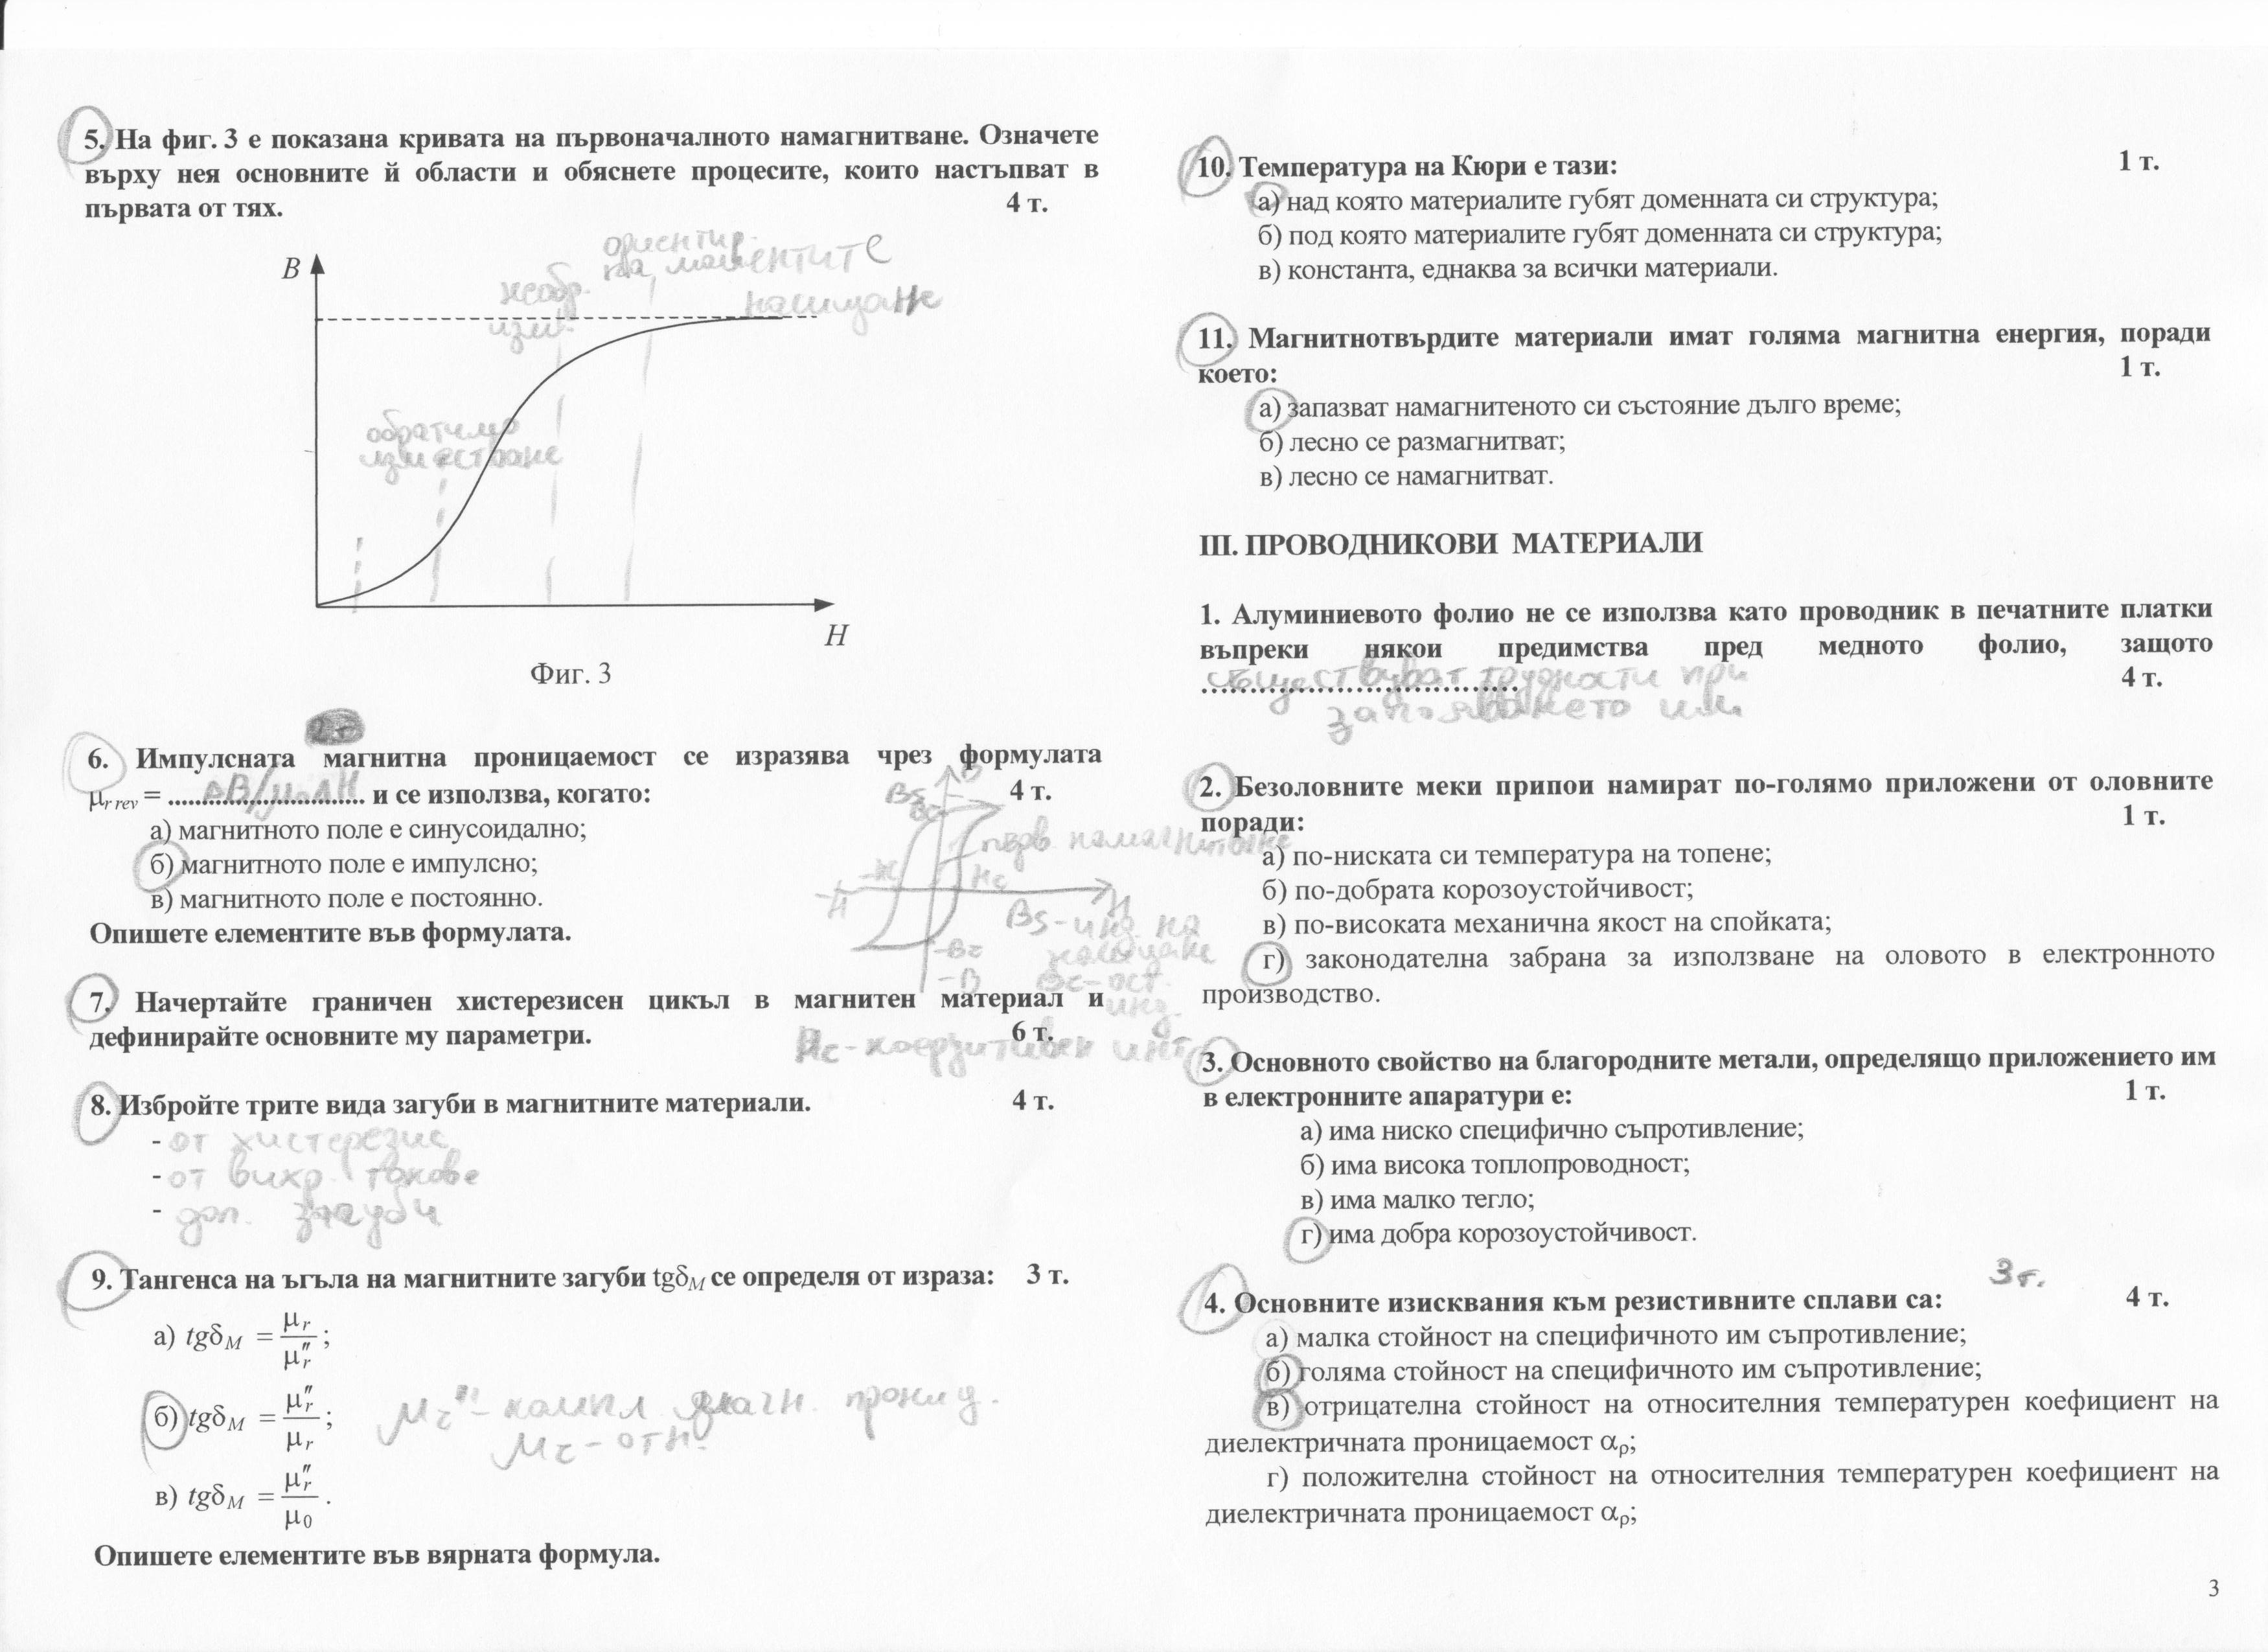 5. На фиг. 3 е показана кривата на първоначалното намагнитване. Означете
върху нея основните й области и обяснете процесите, които настъпват в
първата от тях. 4 т.
ориентир.
на моментите
необр.
изм.
насищане
B
обратимо
изместване
H
Фиг. 3
6. Импулсната магнитна проницаемост се изразява чрез формулата
μr rev = ΔB/μ₀ΔH и се използва, когато: 4 т.
а) магнитното поле е синусоидално;
б) магнитното поле е импулсно;
в) магнитното поле е постоянно.
Опишете елементите във формулата.
B
Bs
първ намагнитване
Hc
-H
H
Bs - инд. на
насищане
-Br
-B
ост.
инд.
7. Начертайте граничен хистерезисен цикъл в магнитен материал и
дефинирайте основните му параметри. 6 т.
Hc - коерцитивен инт
8. Избройте трите вида загуби в магнитните материали. 4 т.
- от хистерезис
- от вихр. токове
- доп. загуби
9. Тангенса на ъгъла на магнитните загуби tgδM се определя от израза: 3 т.
а) tgδM = μr / μr″;
б) tgδM = μr″ / μr;
μr″ - компл магн. прониц.
μr - отн.
в) tgδM = μr″ / μ0.
Опишете елементите във вярната формула.
10. Температура на Кюри е тази: 1 т.
а) над която материалите губят доменната си структура;
б) под която материалите губят доменната си структура;
в) константа, еднаква за всички материали.
11. Магнитнотвърдите материали имат голяма магнитна енергия, поради
което: 1 т.
а) запазват намагнитеното си състояние дълго време;
б) лесно се размагнитват;
в) лесно се намагнитват.
III. ПРОВОДНИКОВИ МАТЕРИАЛИ
1. Алуминиевото фолио не се използва като проводник в печатните платки
въпреки някои предимства пред медното фолио, защото
съществуват трудности при 4 т.
запояването им
2. Безоловните меки припои намират по-голямо приложени от оловните
поради: 1 т.
а) по-ниската си температура на топене;
б) по-добрата корозоустойчивост;
в) по-високата механична якост на спойката;
г) законодателна забрана за използване на оловото в електронното
производство.
3. Основното свойство на благородните метали, определящо приложението им
в електронните апаратури е: 1 т.
а) има ниско специфично съпротивление;
б) има висока топлопроводност;
в) има малко тегло;
г) има добра корозоустойчивост.
3т.
4. Основните изисквания към резистивните сплави са: 4 т.
а) малка стойност на специфичното им съпротивление;
б) голяма стойност на специфичното им съпротивление;
в) отрицателна стойност на относителния температурен коефициент на
диелектричната проницаемост αρ;
г) положителна стойност на относителния температурен коефициент на
диелектричната проницаемост αρ;
3